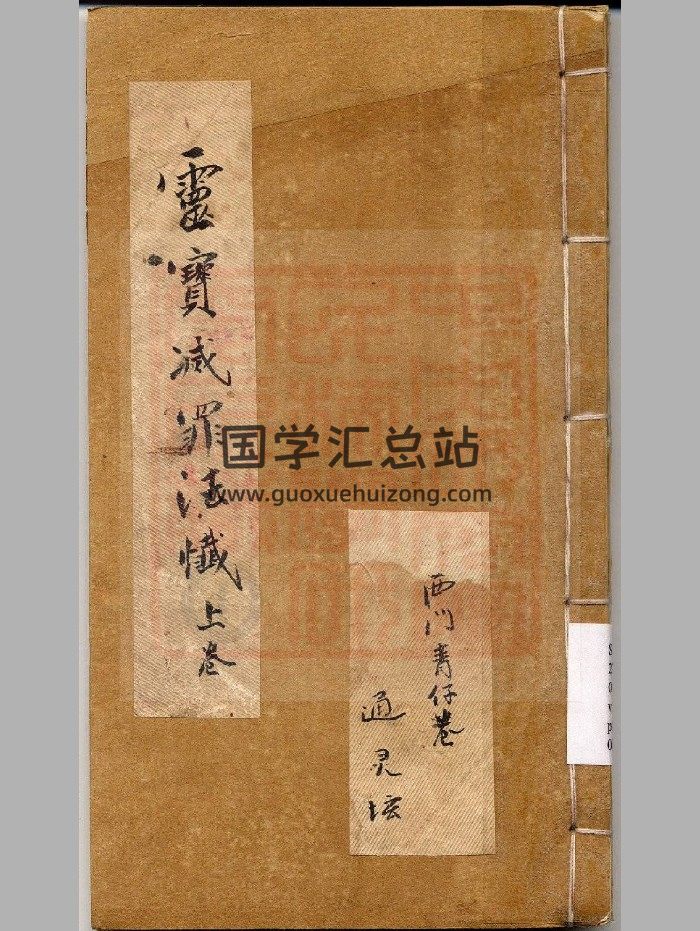 靈寶减罪法懺上卷
西门青仔巷
通灵坛
国学汇总站
www.guoxuehuizong.com